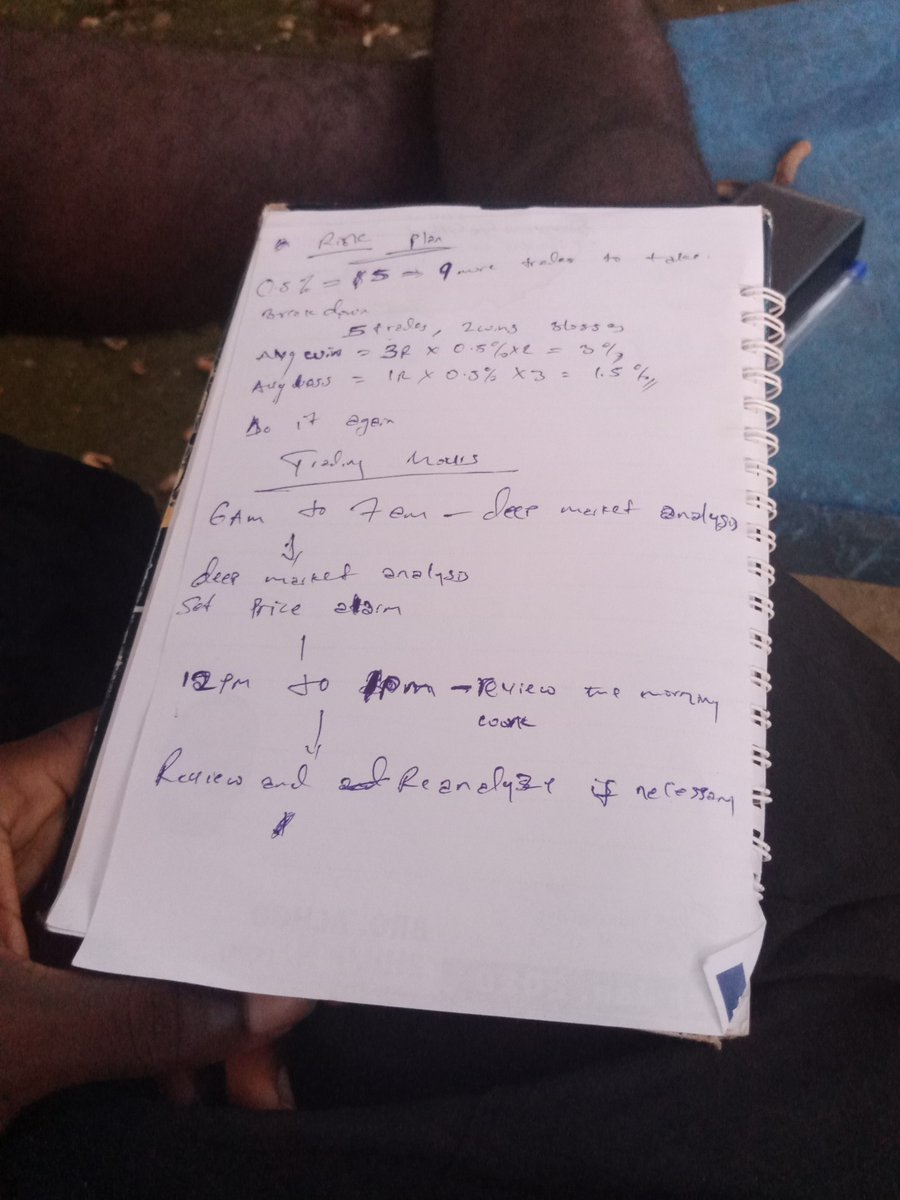 Risk Plan
0.5% = $5 → 9 more trades to take.
Break down
5 trades, 2 wins 3 losses
Avg win = 3R × 0.5% × 2 = 3%
Avg loss = 1R × 0.5% × 3 = 1.5%
Do it again
Trading Hours
6Am to 7am - deep market analysis
deep market analysis
Set Price alarm
12PM to 1pm - Review the morning
work
Review and Reanalyze if necessary